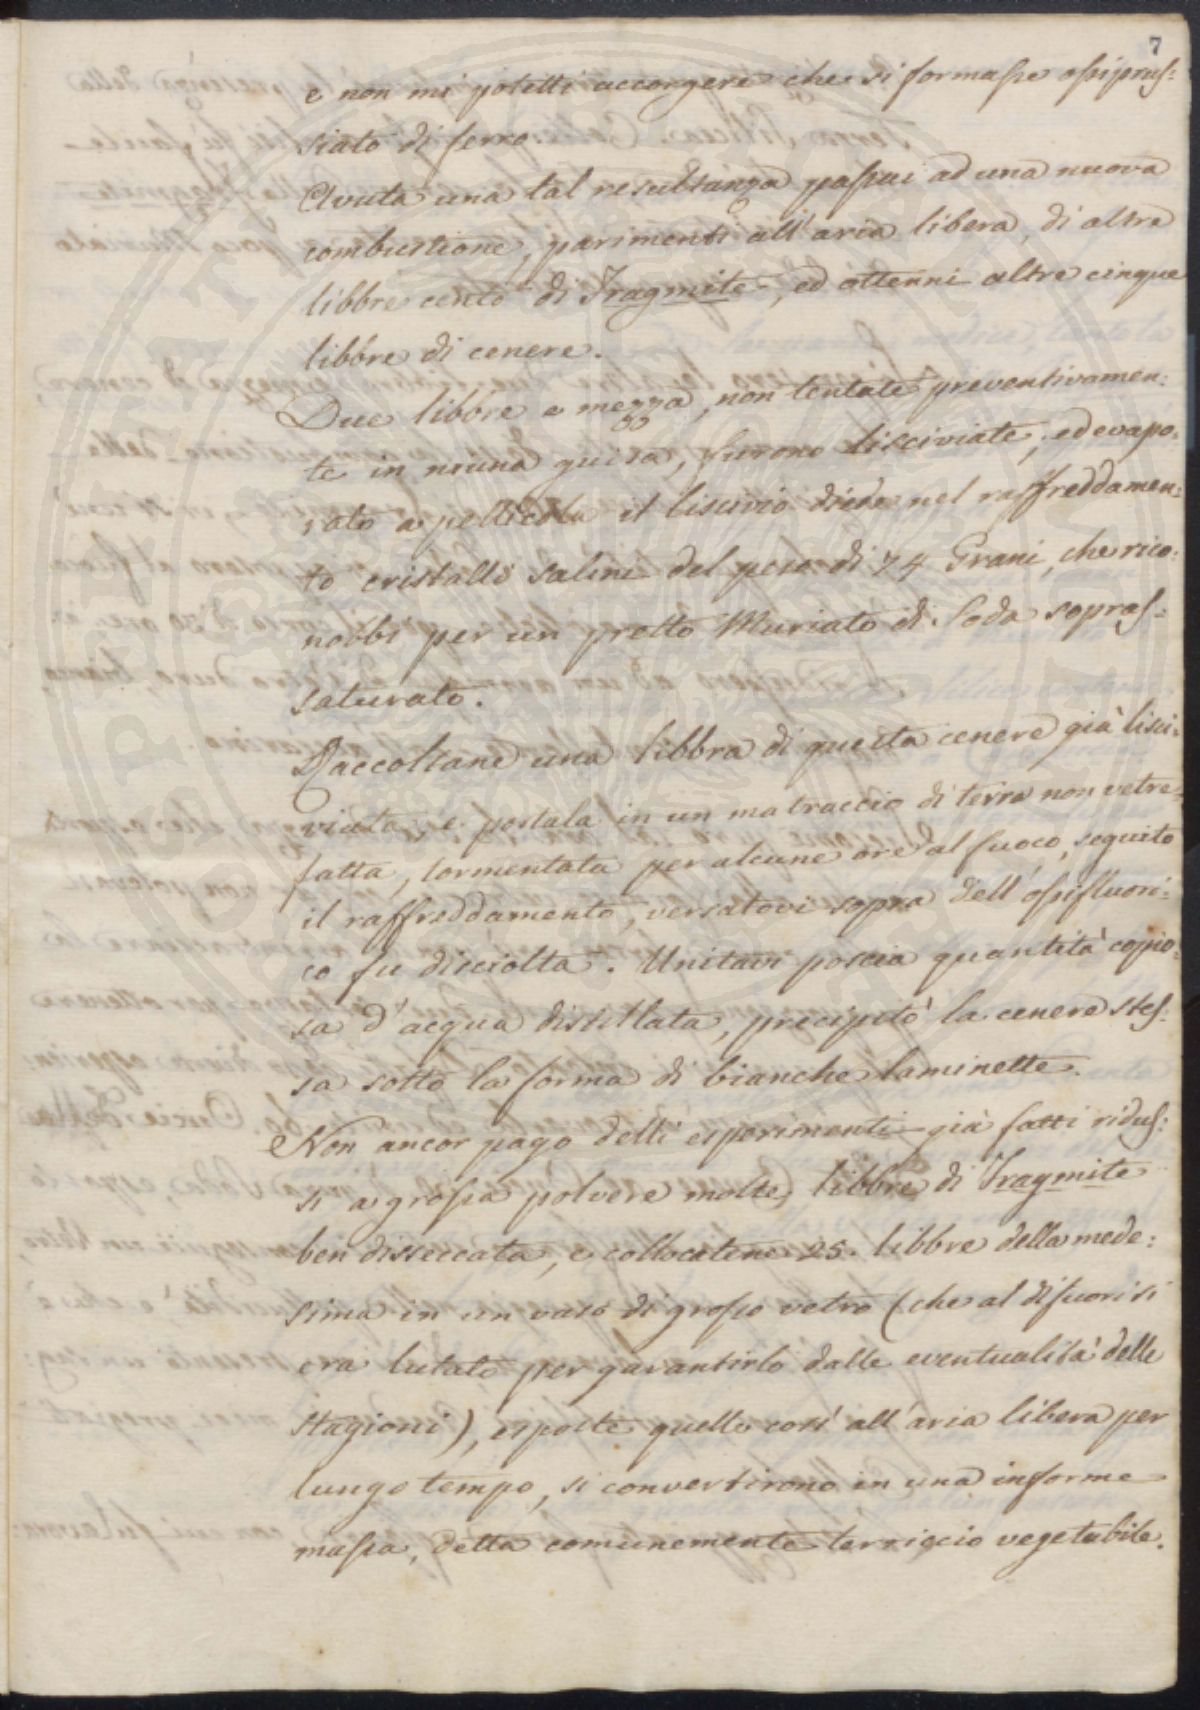 7
e non mi potetti accorgere che si formasse ossiprus:
siato di ferro.
Avuta una tal resultanza passai ad una nuova
combustione, parimenti all'aria libera, di altre
libbre cento di Fragmite, ed ottenni altre cinque
libbre di cenere.
Due libbre e mezza, non tentate preventivamen:
te in niuna guisa, furono lisciviate, ed evapo:
rato a pellicola il liscivio diede nel raffreddamen:
to cristalli salini del peso di 74 Grani, che rico:
nobbi per un pretto Muriato di Soda sopras:
saturato.
Raccoltane una libbra di questa cenere già lisci:
viata, e postala in un matraccio di terra non vetre:
fatta, tormentata per alcune ore al fuoco, seguito
il raffreddamento, versatovi sopra dell'ossifluori:
co fu disciolta. Unitavi poscia quantità copio:
sa d'acqua distillata, precipitò la cenere stes:
sa sotto la forma di bianche laminette.
Non ancor pago delli esperimenti già fatti ridus:
si a grossa polvere molte libbre di Fragmite
ben disseccata, e collocatene 25. libbre della mede:
sima in un vaso di grosso vetro (che al di fuori si
era lutato per garantirlo dalle eventualità delle
stagioni), esposte quelle così all'aria libera per
lungo tempo, si convertirono in una informe
massa, detta comunemente terriccio vegetabile.